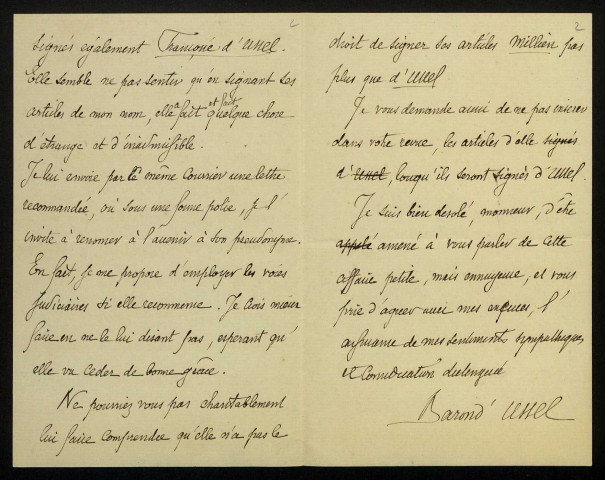 signés également Françoise d'Ussel.
Elle semble ne pas sentir qu'en signant ses
articles de mon nom, elle a fait et fait quelque chose
d'étrange et d'inadmissible.
Je lui envoie par le même courrier une lettre
recommandée, où sous une forme polie, je l'
invite à renoncer à l'avenir à son pseudonyme.
En fait, je me propose d'employer les voies
judiciaires si elle recommence. Je crois mieux
faire en ne le lui disant pas, espérant qu'
elle va céder de bonne grâce.
Ne pourriez vous pas charitablement
lui faire comprendre qu'elle n'a pas le
2
droit de signer ses articles Millien pas
plus que d'Ussel
Je vous demande aussi de ne pas insérer
dans votre revue, les articles d'elle signés
d'Ussel, lorsqu'ils seront signés d'Ussel.
Je suis bien désolé, monsieur, d'être
appelé amené à vous parler de cette
affaire petite, mais ennuyeuse, et vous
prie d'agréer avec mes excuses, l'
assurance de mes sentiments sympathiques
et considération distinguée
Baron d'Ussel